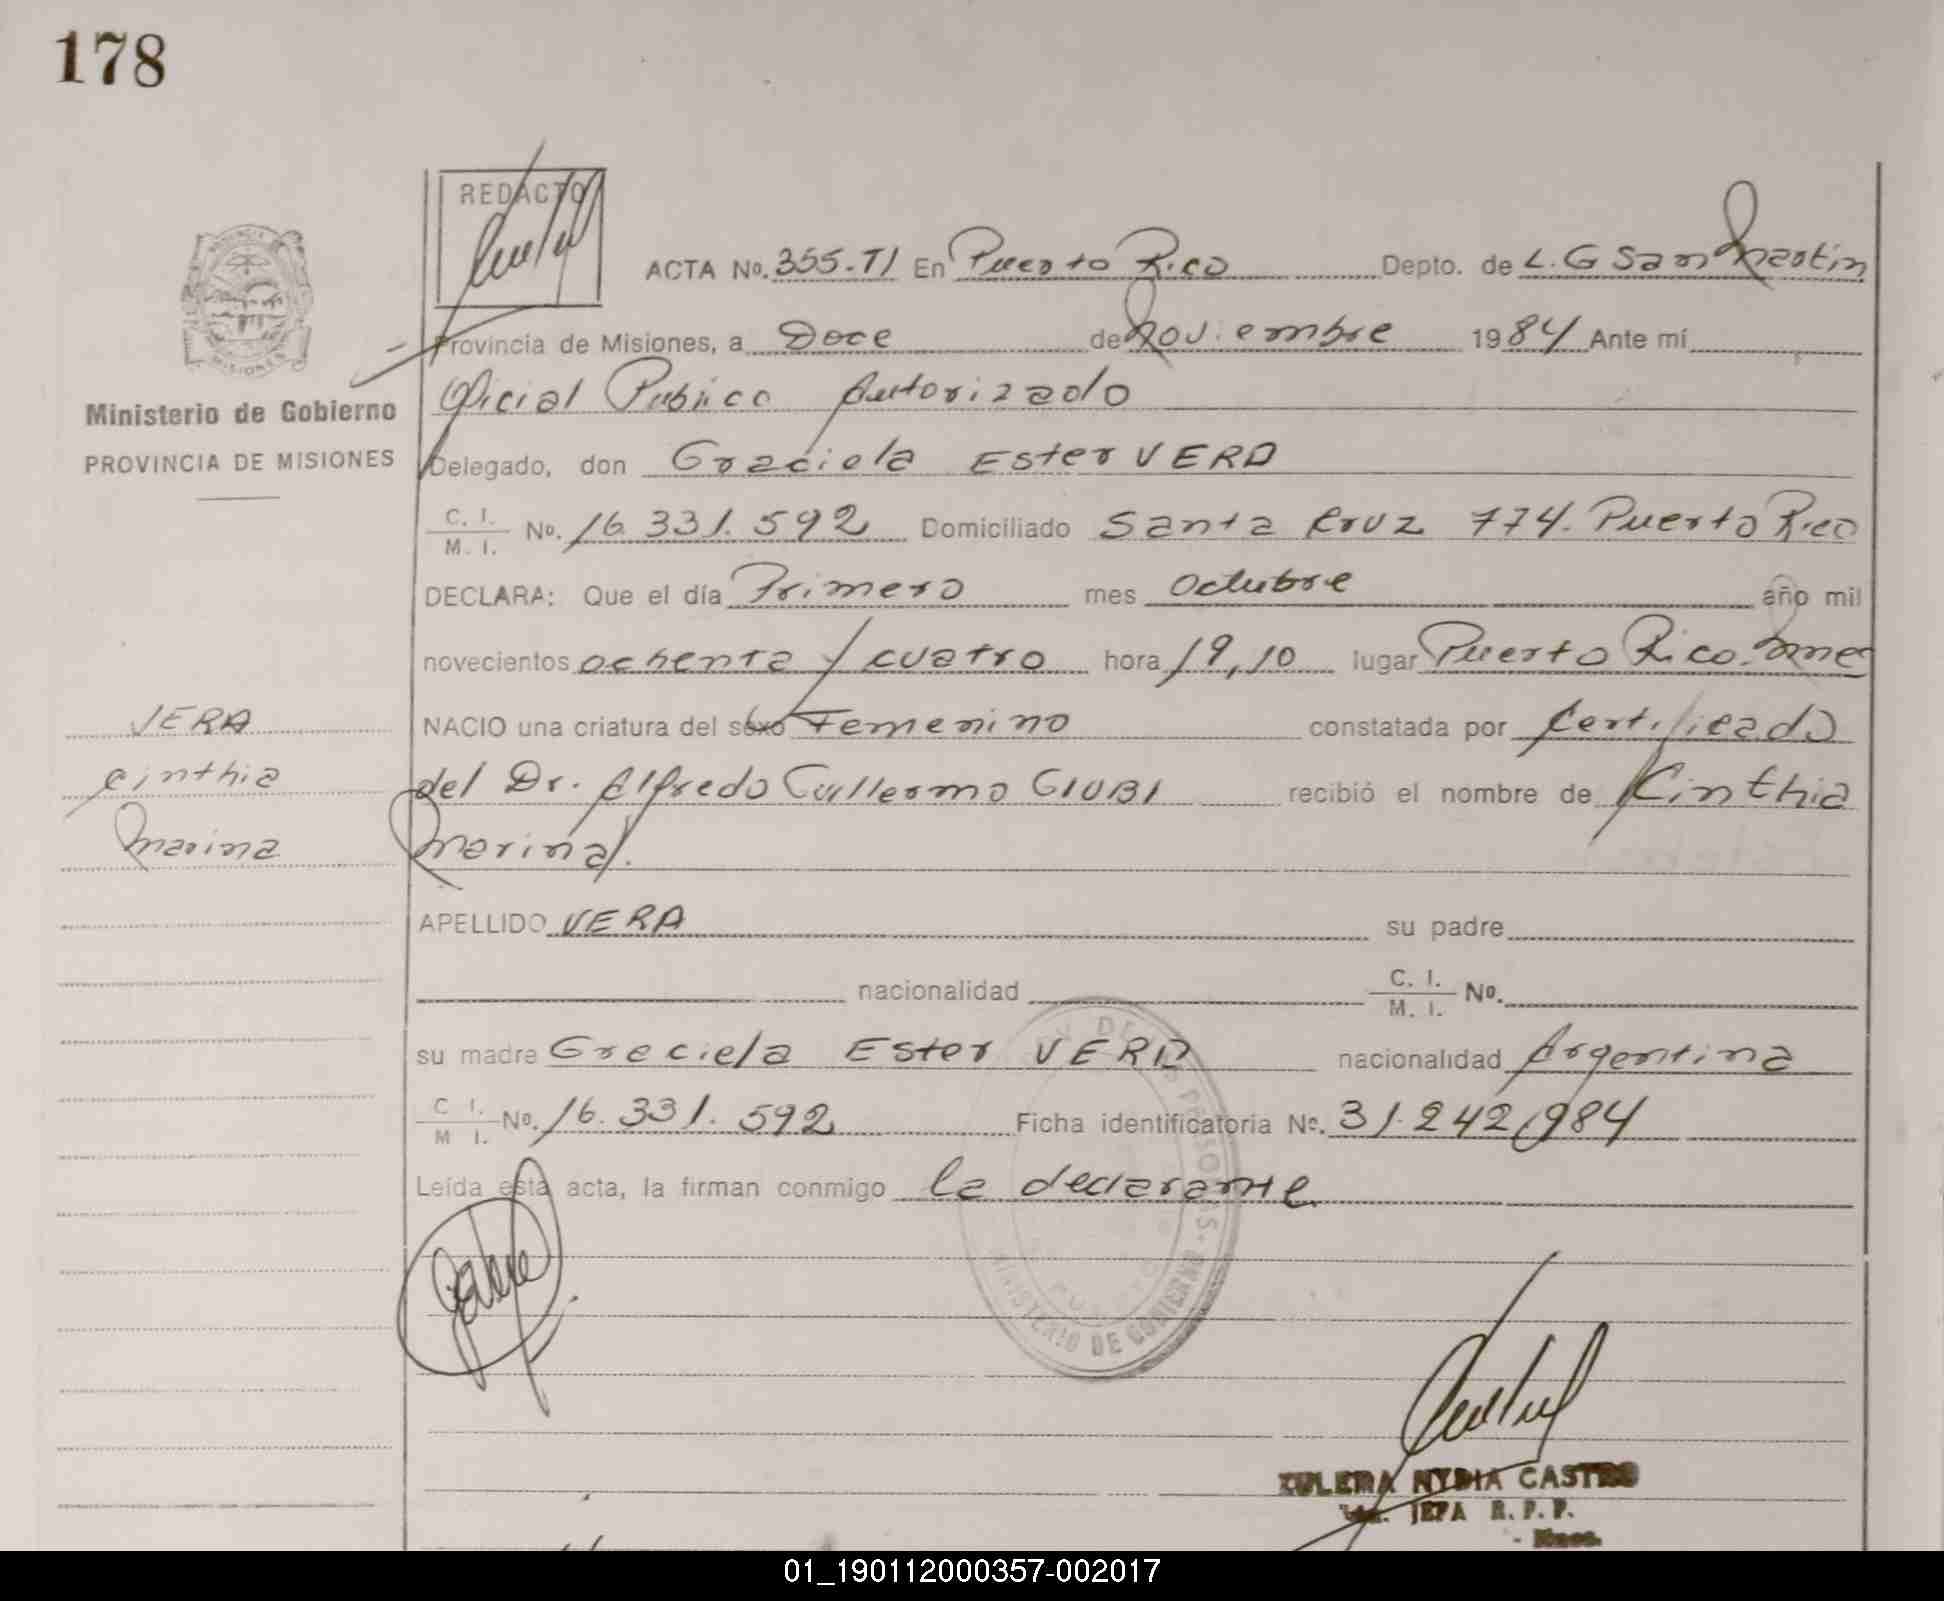 178
REDACTO
ACTA No. 355-TI En Puerto Rico Depto. de L. G San Martin
Provincia de Misiones, a Doce de Noviembre 1984 Ante mí
Ministerio de Gobierno
PROVINCIA DE MISIONES
Oficial Publico Autorizado
Delegado, don Graciela Ester VERA
C. I.
M. I. No. 16.331.592 Domiciliado Santa Cruz 774. Puerto Rico
DECLARA: Que el día Primero mes Octubre año mil
novecientos ochenta y cuatro hora 19,10 lugar Puerto Rico. Mnes
VERA
Cinthia
Marina
NACIO una criatura del sexo Femenino constatada por Certificado
del Dr. Alfredo Guillermo GIUBI recibió el nombre de Cinthia
Marina.
APELLIDO VERA su padre
nacionalidad C. I.
M. I. No.
su madre Graciela Ester VERA nacionalidad Argentina
C. I.
M. I. No. 16.331.592 Ficha identificatoria No. 31.242.984
Leída esta acta, la firman conmigo la declarante
MINISTERIO DE GOBIERNO
ZULEMA NYDIA CASTRO
JEFA R. P. P.
Mnes.
01_190112000357-002017